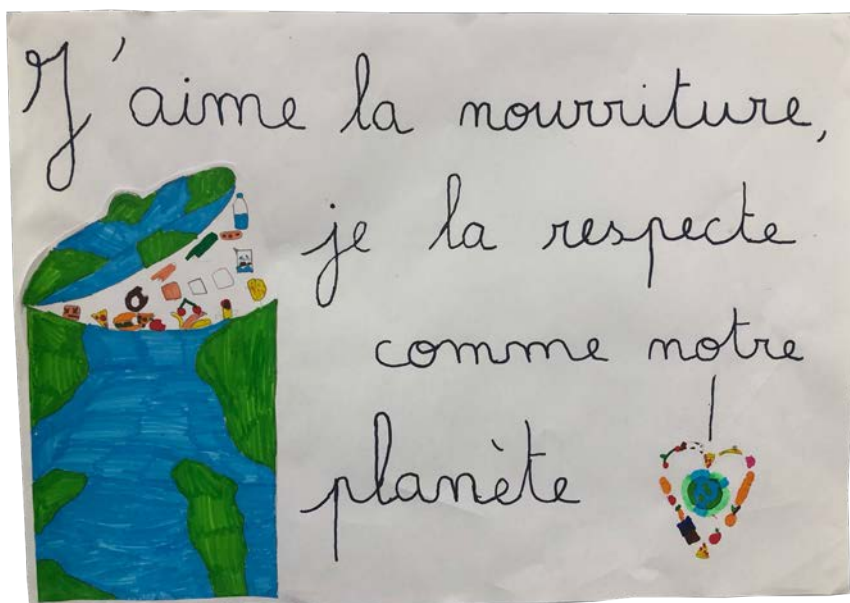 J'aime la nourriture,
je la respecte
comme notre
planète